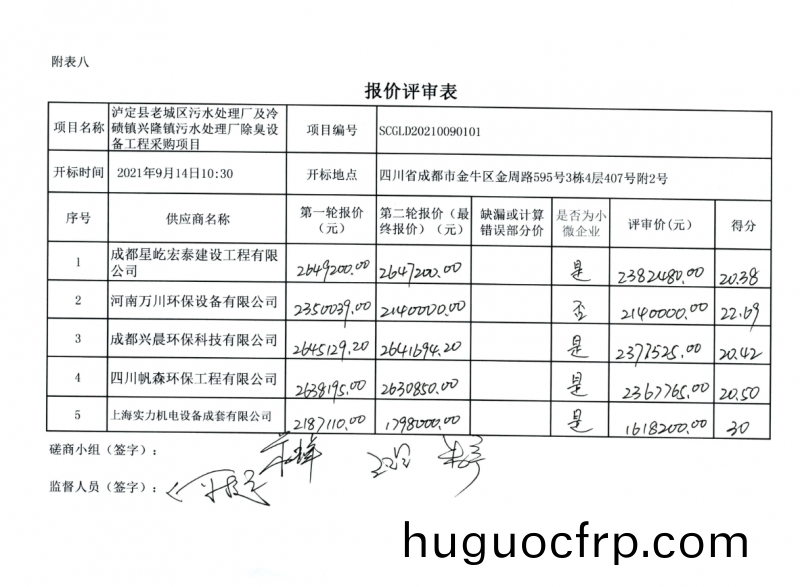 附表八
报价评审表
项目名称 泸定县老城区污水处理厂及冷
碛镇兴隆镇污水处理厂除臭设
备工程采购项目 项目编号 SCGLD20210090101
开标时间 2021年9月14日10:30 开标地点 四川省成都市金牛区金周路595号3栋4层407号附2号
序号 供应商名称 第一轮报价
（元） 第二轮报价（最
终报价）（元） 缺漏或计算
错误部分价 是否为小
微企业 评审价(元) 得分
1 成都星屹宏泰建设工程有限
公司 2649200.00 2647200.00 是 2382480.00 20.38
2 河南万川环保设备有限公司 2350039.00 2140000.00 否 2140000.00 22.69
3 成都兴晨环保科技有限公司 2645129.20 2641694.20 是 2377525.00 20.42
4 四川帆森环保工程有限公司 2638195.00 2630850.00 是 2367765.00 20.50
5 上海实力机电设备成套有限公司 2187110.00 1798000.00 是 1618200.00 30
磋商小组（签字）：
监督人员（签字）：
huguocfrp.com